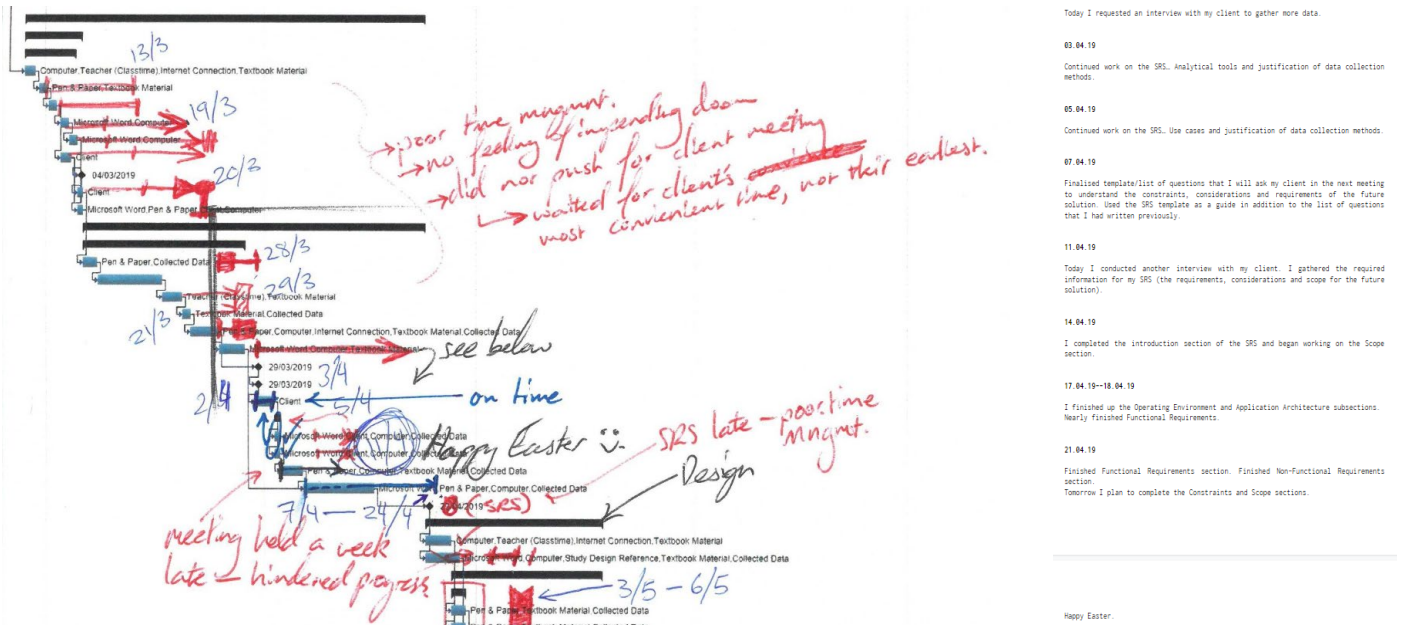 13/3
Computer,Teacher (Classtime),Internet Connection,Textbook Material
Pen & Paper,Textbook Material
19/3
Microsoft Word,Computer
Microsoft Word,Computer
Client
04/03/2019
20/3
Client
Microsoft Word,Pen & Paper,Client,Computer
→poor time mngmnt.
→no feeling of impending doom
→did not push for client meeting
→waited for client's
most convenient time, not their earliest.
28/3
Pen & Paper,Collected Data
29/3
Teacher (Classtime),Textbook Material
Textbook Material,Collected Data
21/3
Pen & Paper,Computer,Internet Connection,Textbook Material,Collected Data
Microsoft Word,Computer,Textbook Material
see below
29/03/2019
3/4
29/03/2019
2/4
Client
5/4
on time
Microsoft Word,Client,Computer,Collected Data
Microsoft Word,Client,Computer,Collected Data
Happy Easter
SRS late - poor time
mngmt.
Pen & Paper,Computer,Textbook Material,Collected Data
Design
Microsoft Word,Pen & Paper,Computer,Collected Data
7/4 — 24/4
(SRS)
meeting held a week
late - hindered progress
Computer,Teacher (Classtime),Internet Connection,Textbook Material
Microsoft Word,Computer,Study Design Reference,Textbook Material,Collected Data
3/5 - 6/5
Pen & Paper,Textbook Material,Collected Data
Today I requested an interview with my client to gather more data.
03.04.19
Continued work on the SRS… Analytical tools and justification of data collection
methods.
05.04.19
Continued work on the SRS… Use cases and justification of data collection methods.
07.04.19
Finalised template/list of questions that I will ask my client in the next meeting
to understand the constraints, considerations and requirements of the future
solution. Used the SRS template as a guide in addition to the list of questions
that I had written previously.
11.04.19
Today I conducted another interview with my client. I gathered the required
information for my SRS (the requirements, considerations and scope for the future
solution).
14.04.19
I completed the introduction section of the SRS and began working on the Scope
section.
17.04.19--18.04.19
I finished up the Operating Environment and Application Architecture subsections.
Nearly finished Functional Requirements.
21.04.19
Finished Functional Requirements section. Finished Non-Functional Requirements
section.
Tomorrow I plan to complete the Constraints and Scope sections.
Happy Easter.